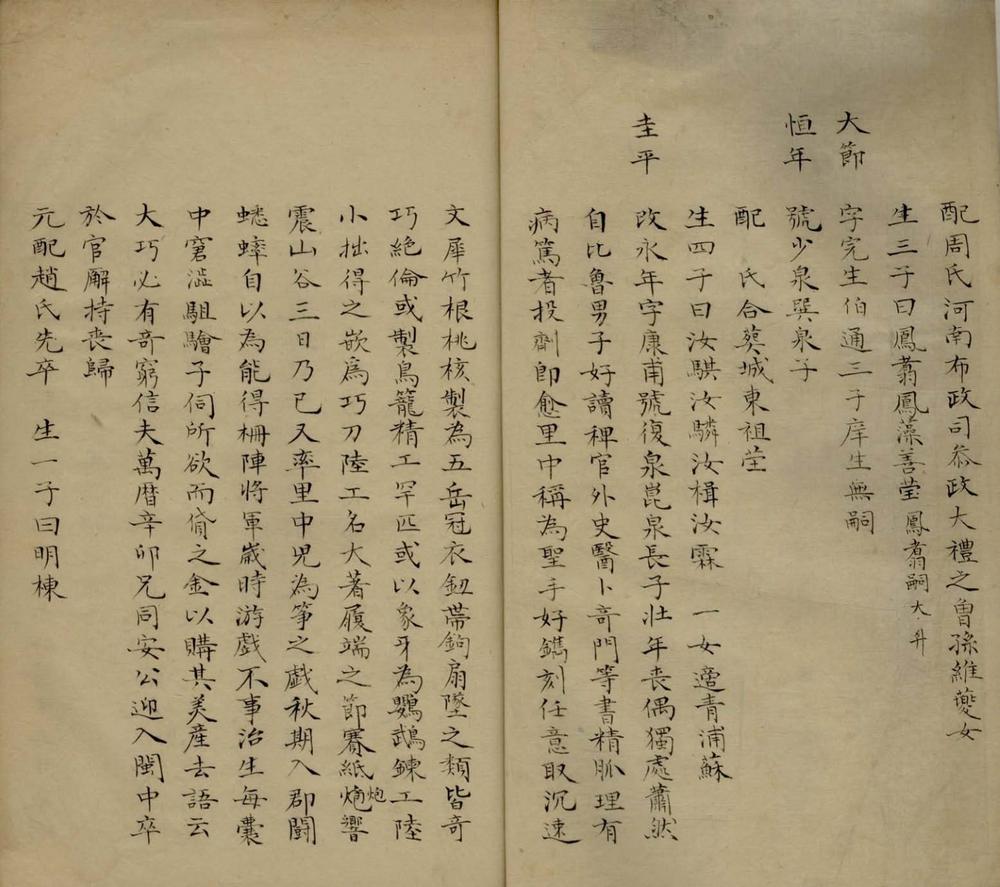 配周氏河南布政司叅政大禮之曾孫維夔女
生三子曰鳳翥鳳藻善瑩鳳翥嗣大升
大節
字完生伯通三子庠生無嗣
恒年
號少泉巽泉子
配　氏合葬城東祖茔
生四子曰汝騏汝驎汝楫汝霖　一女適青浦蘇
圭平
改永年字康甫號復泉崑泉長子壯年喪偶獨處蕭然
自比魯男子好讀稗官外史醫卜奇門等書精脈理有
病篤者投劑即愈里中稱為聖手好鐫刻任意取沉速
文犀竹根桃核製為五岳冠衣鈕帶鉤扇墜之類皆奇
巧絕倫或製鳥籠精工罕匹或以象牙為鸚鵡鍊工陸
小拙得之嵌爲巧刀陸工名大著履端之節賽紙炮炮響
震山谷三日乃已又率里中児為箏之戲秋期入郡鬭
蟋蟀自以為能得柵陣將軍歲時游戲不事治生每橐
中窘澁駔驓子伺所欲而貸之金以購其美産去語云
大巧必有奇窮信夫萬曆辛卯兄同安公迎入閩中卒
於官廨持喪歸
元配趙氏先卒　生一子曰明棟